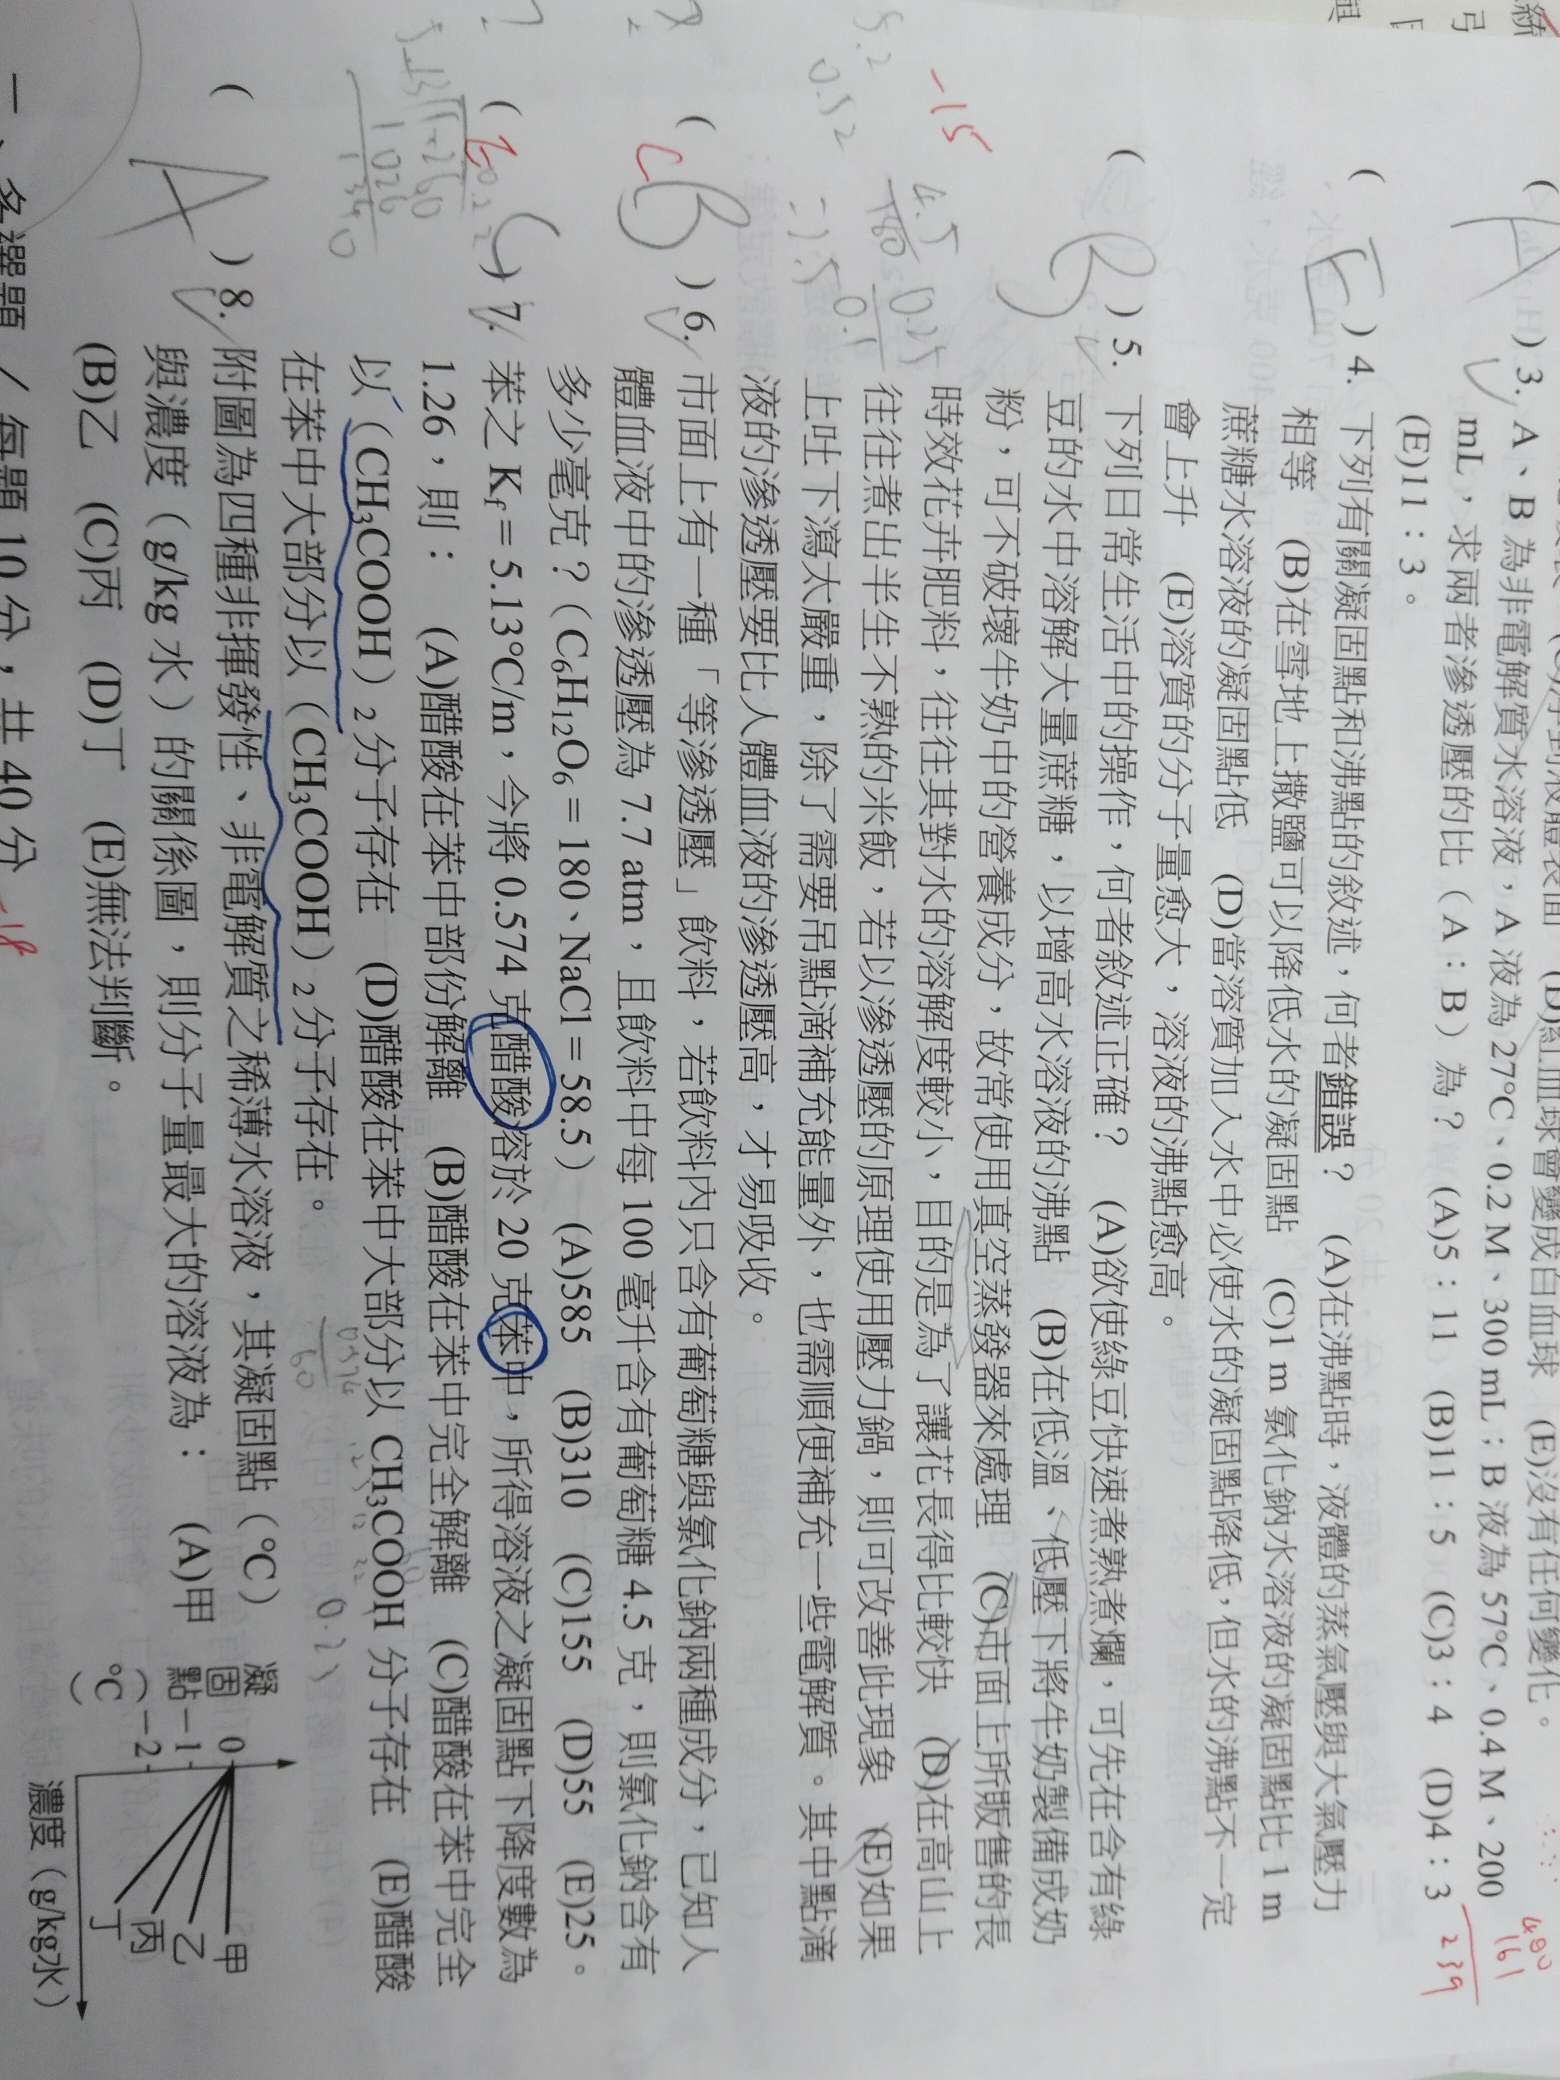 A
)3. A、B 為非電解質水溶液，A 液為 27℃、0.2 M、300 mL；B 液為 57℃、0.4 M、200
mL，求兩者滲透壓的比（A：B）為？ (A)5：11 (B)11：5 (C)3：4 (D)4：3
(E)11：3。
480
161
239
( E )4. 下列有關凝固點和沸點的敘述，何者錯誤？ (A)在沸點時，液體的蒸氣壓與大氣壓力
相等 (B)在雪地上撒鹽可以降低水的凝固點 (C)1 m 氯化鈉水溶液的凝固點比 1 m
蔗糖水溶液的凝固點低 (D)當溶質加入水中必使水的凝固點降低，但水的沸點不一定
會上升 (E)溶質的分子量愈大，溶液的沸點愈高。
( B )5. 下列日常生活中的操作，何者敘述正確？ (A)欲使綠豆快速煮熟煮爛，可先在含有綠
豆的水中溶解大量蔗糖，以增高水溶液的沸點 (B)在低溫、低壓下將牛奶製備成奶
粉，可不破壞牛奶中的營養成分，故常使用真空蒸發器來處理 (C)市面上所販售的長
時效花卉肥料，往往其對水的溶解度較小，目的是為了讓花長得比較快 (D)在高山上
往往煮出半生不熟的米飯，若以滲透壓的原理使用壓力鍋，則可改善此現象 (E)如果
上吐下瀉太嚴重，除了需要吊點滴補充能量外，也需順便補充一些電解質。其中點滴
液的滲透壓要比人體血液的滲透壓高，才易吸收。
-15
4.5
180
0.25
0.52
( C B )6. 市面上有一種「等滲透壓」飲料，若飲料內只含有葡萄糖與氯化鈉兩種成分，已知人
體血液中的滲透壓為 7.7 atm，且飲料中每 100 毫升含有葡萄糖 4.5 克，則氯化鈉含有
多少毫克？（C₆H₁₂O₆ = 180、NaCl = 58.5） (A)585 (B)310 (C)155 (D)55 (E)25。
( C )7. 苯之 Kf = 5.13℃/m，今將 0.574 克醋酸溶於 20 克苯中，所得溶液之凝固點下降度數為
1.26，則： (A)醋酸在苯中部份解離 (B)醋酸在苯中完全解離 (C)醋酸在苯中完全
以（CH₃COOH）₂ 分子存在 (D)醋酸在苯中大部分以 CH₃COOH 分子存在 (E)醋酸
在苯中大部分以（CH₃COOH）₂ 分子存在。
0.574
60
( A )8. 附圖為四種非揮發性、非電解質之稀薄水溶液，其凝固點（℃）
與濃度（g/kg 水）的關係圖，則分子量最大的溶液為： (A)甲
(B)乙 (C)丙 (D)丁 (E)無法判斷。
凝固點（℃）
0
-1
-2
甲
乙
丙
丁
濃度（g/kg水）
多選題／每題 10 分，共 40 分
-18